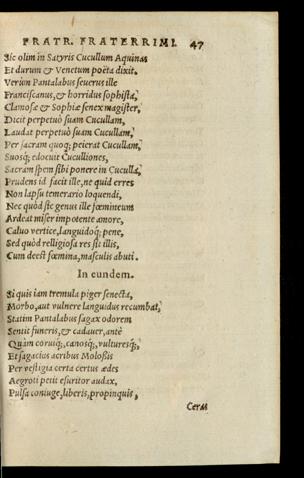 FRATR. FRATERRIMI. 47
Sic olim in Satyris Cucullum Aquinas
Et durum & Venetum poëta dixit.
Verùm Pantalabus seuerus ille
Franciscanus, & horridus sophista,
Clamosæ & Sophiæ senex magister,
Dicit perpetuò suam Cucullam,
Laudat perpetuò suam Cucullam,
Per sacram quoq; peierat Cucullam,
Suosq; edocuit Cuculliones,
Sacram spem sibi ponere in Cuculla,
Prudens id facit ille, ne quid erres
Non lapsu temerario loquendi,
Nec quòd sic genus ille fœmineum
Ardeat miser impotente amore,
Caluo vertice, languidoq; pene,
Sed quòd relligiosa res sit illis,
Cum deest fœmina, masculis abuti.
In eundem.
Si quis iam tremula piger senecta,
Morbo, aut vulnere languidus recumbat,
Statim Pantalabus sagax odorem
Sentit funeris, & cadauer, antè
Quàm coruiq;, canosq;, vulturesq;,
Et sagacius acribus Molossis
Per vestigia certa certus ædes
Aegroti petit esuritor audax,
Pulsa coniuge, liberis, propinquis,
Ceras